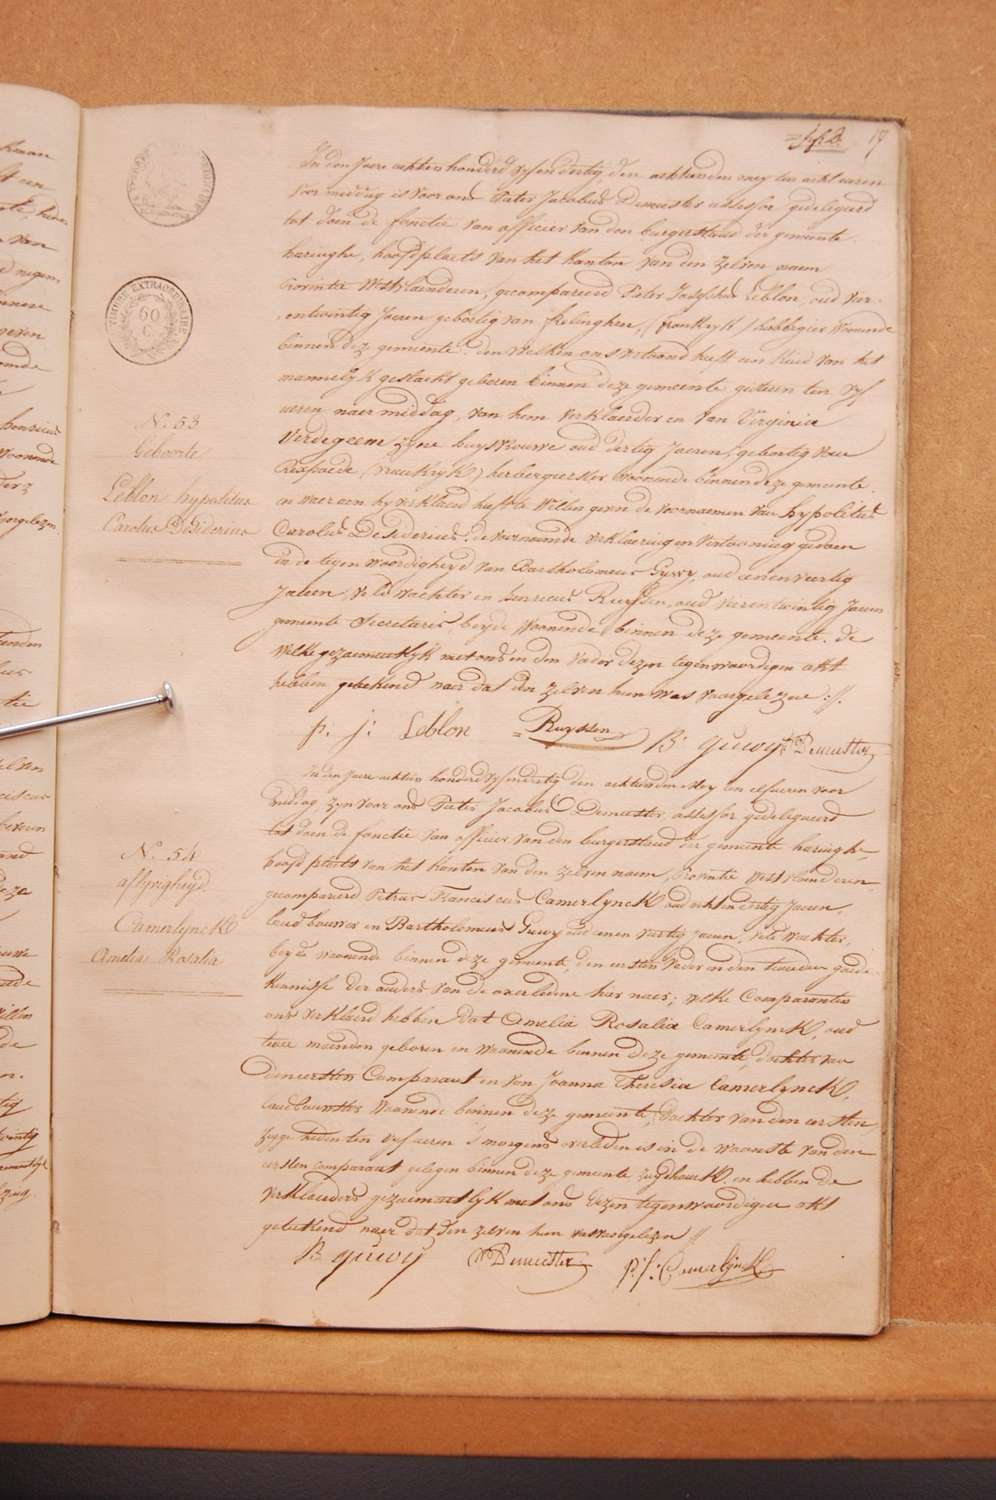 19
In den Jaere achtien honderd vyfendertig den achtienden mey ten acht uren
voormiddag is voor ons Pieter Jacobus Demeester assessor gedelegeerd
tot doen de fonctie van officier van den burgerstand der gemeente
haringhe, hoofdplaets van het kanton van den zelven naem
Provintie Westvlaenderen, gecompareerd Pieter Josephus Leblon, oud
entwintig Jaeren geboortig van frelinghen, (frankryk) herbergier Woonende
binnen deze gemeente. den welken ons vertoond heeft een kind van het
mannelyk geslacht geboren binnen deze gemeente gisteren ten vyf
uren naer middag, van hem verklaerder en van Virginia
Verdegeem zyne huysvrouwe oud dertig Jaeren, geboortig van
Rexpoede (frankryk) herbergierster woonende binnen deze gemeente
en waer aen hy verklaerd heeft te willen geven de voornaemen van hypolitus
Carolus Desiderius. de voornoemde verklaering en vertooning gedaen
in de tegenwoordigheyd van Bartholomeus Guwy, oud eenenveertig
Jaeren, veldwachter en henricus Ruyssen, oud vierentwintig Jaeren
gemeente Secretaris, beyde Woonende binnen deze gemeente. de
welke gezaementlyk met ons en den vader dezen tegenwoordigen akt
hebben geteekend naer dat den zelven hun was voorgelezen ://.
p: j: Leblon Ruyssen B. guwy Demeester
TIMBRE EXTRAORDINAIRE
60
C.
No. 53
Geboorte
Leblon hypolitus
Carolus Desiderius
In den Jaere achtien honderd vyfendertig den achtienden Mey ten elf uren voor
middag, zyn voor ons Pieter Jacobus Demeester, assessor gedelegeerd
tot doen de fonctie van officier van den burgerstand der gemeente haringhe,
hoofdplaets van het kanton van den zelven naem, Provintie Westvlaenderen,
gecompareerd Petrus Franciscus Camerlynck oud achtendertig Jaeren,
landbouwer en Bartholomeus Guwy oud eenen veertig Jaeren, veldwachter,
beyde woonende binnen deze gemeente, den eersten Vader en den tweeden goede
kennisse der ouders van de overledene hier naer; welke Comparanten
ons verklaerd hebben dat Amelia Rosalia Camerlynck, oud
twee maenden geboren en woonende binnen deze gemeente, dochter van
den eersten Comparant en van Joanna Theresia Camerlynck,
landbouwster woonende binnen deze gemeente, dochter van den eersten,
zyge heden ten vyf uren 's morgens overleden is in de woonste van den
eersten comparant gelegen binnen deze gemeente zuydhoeck en hebben de
verklaerders gezaementlyk met ons dezen tegenwoordigen akt
geteekend naer dat den zelven hun was voorgelezen //
B guwy Demeester p: f: Camerlynck
No. 54
aflyvigheyd
Camerlynck
Amelia Rosalia